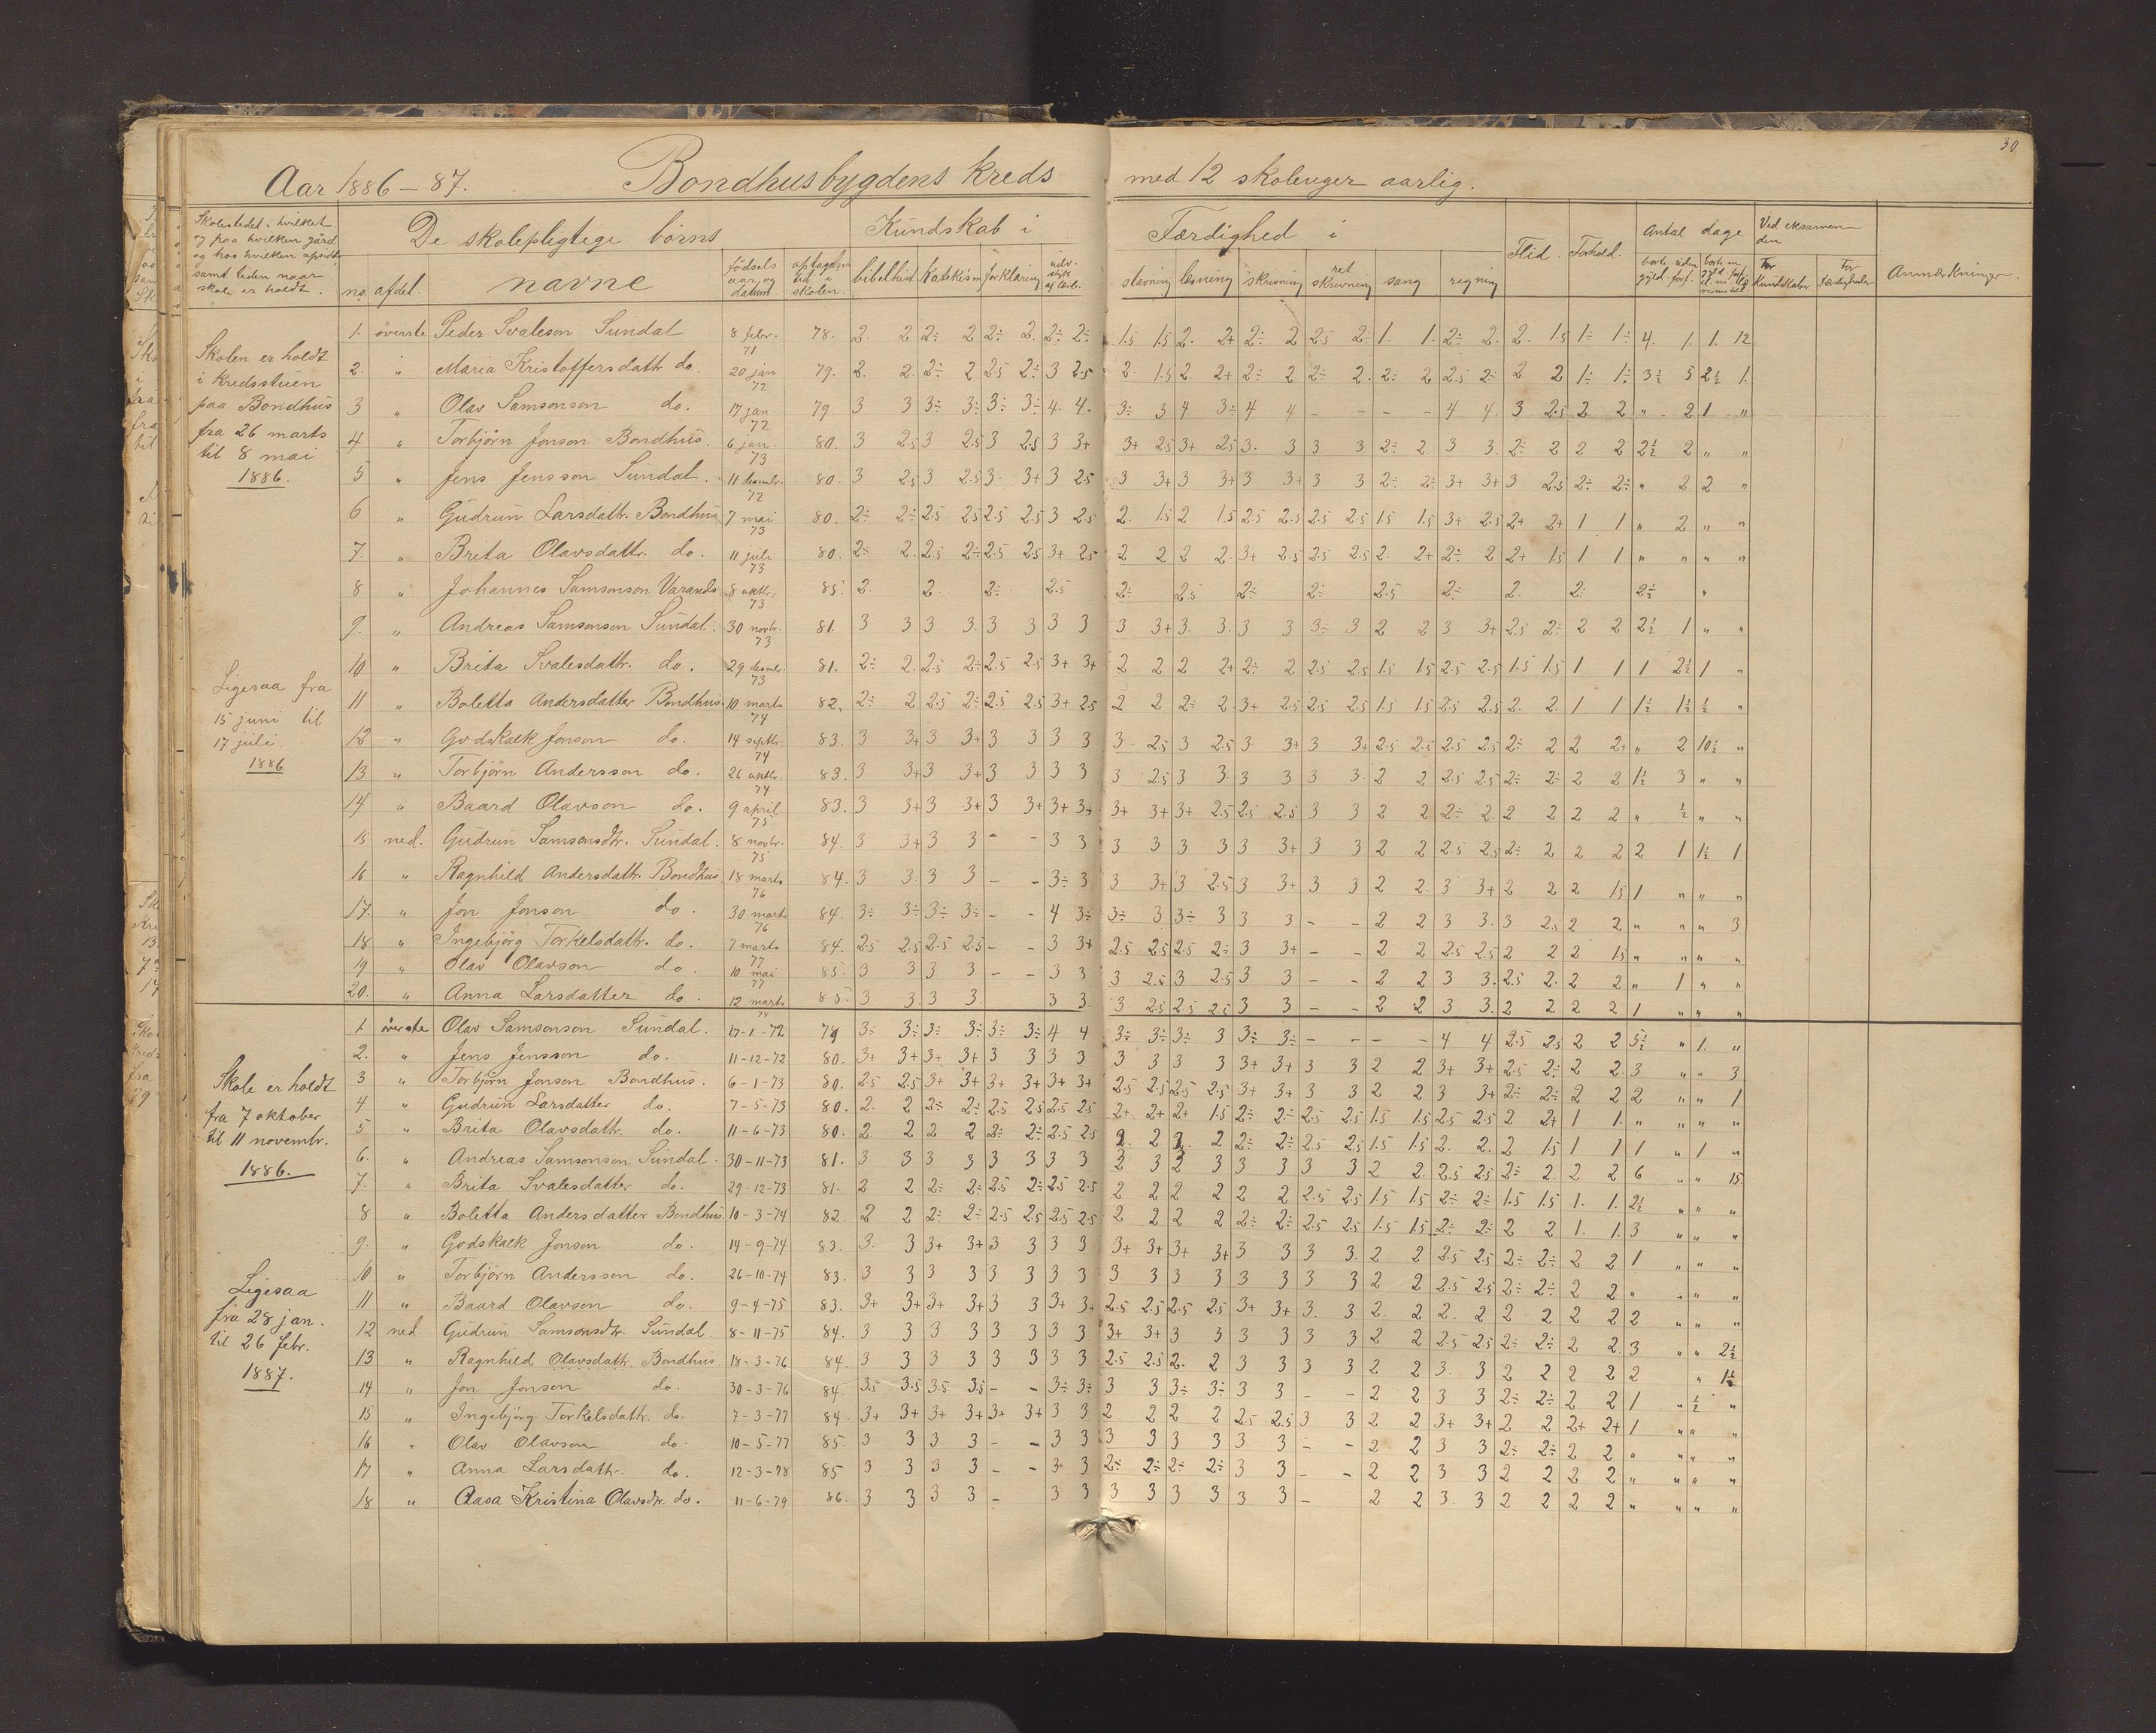 30
Aar 1886-87. Bondhusbygdens kreds med 12 skoleuger aarlig.
Skolestedet i hvilket og paa hvilken gård og hos hvilken opsidder samt tiden naar skole er holdt.
De skolepligtege börns Kundskab i Færdighed i Flid. Forhold. Antal dage Ved eksamenden Anmærkninger.
no. afdel. navne födsels aar og datum optagelses tid i skolen. bibelhist Katekism forklaring udv. styk af læseb. stavning læsning skrivning ret skrivning sang regning borte uden gyld. forf. For Kundskaber For Færdigheder
Skolen er holdt
i kredsstuen
paa Bondhus
fra 26 marts
til 8 mai
1886.
1. överste Peder Svaleson Sundal 8 febr. 71 78. 2. 2 2÷ 2 2÷ 2. 2÷ 2÷ 1.5 1.5 2. 2+ 2÷ 2 2.5 2÷ 1. 1. 2÷ 2. 2. 1.5 1÷ 1÷ 4. 1. 1. 12
2. " Maria Kristoffersdattr do. 20 jan 72 79. 2. 2. 2÷ 2 2.5 2÷ 3 2.5 2. 1.5 2 2+ 2÷ 2 2÷ 2. 2÷ 2 2.5 2÷ 2 2 1÷ 1÷ 3½ 5 2½ 1.
3 " Olav Samsonson do. 17 jan 72 79. 3 3 3÷ 3÷ 3÷ 3÷ 4. 4. 3÷ 3 4 3÷ 4 4 - - - - 4 4. 3 2.5 2 2 " 2 1 "
4 " Torbjörn Jonson Bondhus. 6 jan. 73 80. 3 2.5 3 2.5 3 2.5 3 3+ 3+ 2.5 3+ 2.5 3. 3 3 3 2÷ 2. 3 3. 2÷ 2 2 2 2½ 2 " "
5 " Jens Jensson Sundal. 11 desembr. 72 80. 3 2.5 3 2.5 3. 3+ 3 2.5 3 3+ 3 3+ 3 3+ 3 3 2÷ 2÷ 3+ 3+ 3 2.5 2÷ 2÷ " 2 2 "
6 " Gudrun Larsdattr. Bondhus 7 mai 73 80. 2÷ 2÷ 2.5 2.5 2.5 2.5 3 2.5 2. 1.5 2 1.5 2.5 2.5 2.5 2.5 1.5 1.5 3+ 2.5 2+ 2+ 1 1 " 2 " "
7. " Brita Olavsdattr. do. 11 juli 73 80. 2÷ 2. 2.5 2÷ 2.5 2.5 3+ 2.5 2 2 2 2. 3+ 2.5 2.5 2.5 2. 2+ 2÷ 2 2+ 1.5 1 1 " " " "
8 " Johannes Samsonson 8 oktbr. 73 85. 2. 2 2÷ 2.5 2÷ 2.5 2÷ 2÷ 2.5 2÷ 2. 2÷ "
9. " Andreas Samsonson Sundal. 30 novbr. 73 81. 3 3 3 3. 3 3 3 3 3 3+ 3. 3. 3 3 3÷ 3 2 2 3 3+ 2.5 2÷ 2 2 2½ 1 " "
10 " Brita Svalesdattr. do. 29 desmbr. 73 81. 2÷ 2. 2.5 2÷ 2.5 2.5 3+ 3+ 2 2 2 2+ 2÷ 2 2.5 2.5 1.5 1.5 2.5 2.5 1.5 1.5 1 1 1 2½ 1 "
Ligesaa fra
15 juni til
17 juli
1886
11 " Boletta Andersdatter Bondhus. 10 marts 74 82. 2÷ 2 2.5 2÷ 2.5 2.5 3+ 2.5 2 2 2÷ 2 3+ 2.5 2.5 2.5 1.5 1.5 2.5 2.5 2. 2. 1 1 1½ 1½ ½ "
12 " Godskalk Jonson do. 14 septbr. 74 83. 3 3+ 3 3+ 3 3 3 3 3. 2.5 3 2.5 3. 3+ 3 3+ 2.5 2.5 2.5 2.5 2÷ 2 2 2+ " 2 10½ "
13 " Torbjörn Andersson do. 26 oktbr. 74 83. 3 3+ 3 3+ 3 3 3 3 3 2.5 3 3. 3 3 3 3. 2 2 2.5 2.5 2÷ 2÷ 2 2 1½ 3 " "
14 " Baard Olavson do. 9 april 75 83. 3 3+ 3 3+ 3 3+ 3+ 3+ 3+ 3+ 3+ 2.5 2.5 2.5 3 3 2 2 2÷ 2. 2 2 2 2 " ½ " "
15 ned. Gudrun Samsonsdtr. Sundal. 8 novbr. 75 84. 3 3+ 3 3 - - 3 3 3 3 3 3 3 3+ 3 3 2 2 2.5 2.5 2÷ 2 2 2 2 1 1½ 1
16 " Ragnhild Andersdattr. Bondhus 18 marts 76 84. 3 3 3 3 - - 3÷ 3 3 3+ 3 2.5 3 3+ 3 3 2 2. 3 3+ 2 2 2 1.5 1 " " "
17. " Jon Jonson do. 30 marts 76 84. 3÷ 3÷ 3÷ 3÷ - - 4 3÷ 3÷ 3 3÷ 3 3 3 - - 2 2 3 3. 3 2.5 2 2 " " " 3
18 " Ingebjörg Torkelsdattr. do. 7 marts 77 84. 2.5 2.5 2.5 2.5 - - 3 3+ 2.5 2.5 2.5 2÷ 3 3+ - - 2 2 2.5 2.5 2 2 2 1.5 " " " "
19 " Olav Olavson do. 10 mai 77 85. 3 3 3 3 - - 3 3 3 2.5 3 2.5 3 3 - - 2 2 3 3. 2.5 2. 2 2 " 1 " "
20. " Anna Larsdatter do. 12 marts 78 85. 3 3. 3 3. 3 3. 3 2.5 2.5 2.5 3 3 - - 2 2 3 3. 2 2 2 2 1 " " "
Skole er holdt
fra 7 oktober
til 11 novembr.
1886.
1. överste Olav Samsonson Sundal. 17-1-72 79 3÷ 3÷ 3÷ 3÷ 3÷ 3÷ 4 4 3÷ 3÷ 3÷ 3 3÷ 3÷ - - - - 4 4 2.5 2.5 2 2 5½ " 1. "
2. " Jens Jensson do. 11-12-72 80. 3+ 3+ 3+ 3+ 3 3 3 3 3 3 3 3 3+ 3+ 3 3 2 2 3+ 3+ 2.5 2÷ 2 2. 3 " " 3
3 " Torbjörn Jonson Bondhus. 6-1-73 80. 2.5 2.5 3+ 3+ 3+ 3+ 3+ 3+ 2.5 2.5 2.5 2.5 3+ 3+ 3 3 2 2 3 3+ 2÷ 2÷ 2 2 2 " " 1
4 " Gudrun Larsdatter do. 7-5-73 80. 2. 2 2÷ 2÷ 2.5 2.5 2.5 2.5 2+ 2+ 2+ 1.5 2÷ 2÷ 2.5 2.5 1.5 1.5 2.5 2.5 2 2+ 1 1. " " " "
5 " Brita Olavsdattr. do. 11-6-73 80. 2. 2 2 2 2÷ 2÷ 2.5 2.5 2. 2 2. 2 2÷ 2÷ 2.5 2.5 1.5 1.5 2. 2. 2 1.5 1 1 1 " 1 "
6. " Andreas Samsonson Sundal. 30-11-73 81. 3 3 3 3 3 3 3 3 3 3 3 3 3 3 3 3 2 2. 2.5 2.5 2÷ 2. 2 2 6 " " 15
7. " Brita Svalesdatter do. 29-12-73 81. 2 2 2÷ 2÷ 2.5 2÷ 2.5 2.5 2 2 2 2 2 2 2.5 2.5 1.5 1.5 2÷ 2÷ 1.5 1.5 1. 1. 2½ " " "
8 " Boletta Andersdatter Bondhus. 10-3-74 82. 2 2 2÷ 2÷ 2.5 2.5 2.5 2.5 2 2 2 2 2÷ 2÷ 2.5 2.5 1.5 1.5 2÷ 2÷ 2 2 1. 1. 3 " " "
9. " Godskalk Jonson do. 14-9-74 83. 3. 3 3+ 3+ 3 3 3 3 3+ 3+ 3+ 3+ 3 3 3 3. 2 2 2.5 2.5 2÷ 2÷ 2 2 1 " " "
Ligesaa
fra 28 jan.
til 26 febr.
1887.
10 " Torbjörn Andersson do. 26-10-74 83. 3 3 3 3 3 3 3 3 3 3 3 3 3 3 3 3 2 2 2.5 2.5 2÷ 2÷ 2 2 " " " "
11 " Baard Olavson do. 9-4-75 83. 3+ 3+ 3+ 3+ 3 3 3+ 3+ 2.5 2.5 2.5 2.5 3+ 3+ 3. 3 2. 2 2. 2. 2 2 2 2 2 " " "
12 ned. Gudrun Samsonsdtr. Sundal 8-11-75 84. 3 3 3 3 3 3 3 3 3+ 3+ 3 3 3 3 3 3 2 2 2.5 2.5 2÷ 2÷ 2 2. 3 " " 2½
13 " Ragnhild Olavsdattr. Bondhus 18-3-76 84. 3 3 3 3 3 3 3 3 2.5 2.5 2. 2 3 3 3 3 2 2 3. 3 2 2 2 2 2 " 1½
14 " Jon Jonson do. 30-3-76 84. 3.5 3.5 3.5 3.5 - - 3÷ 3÷ 3 3 3÷ 3÷ 3 3 - - 2 2 3 3 2÷ 2÷ 2 2 1 " ½ "
15 " Ingebjörg Torkelsdattr. do. 7-3-77 84. 3+ 3+ 3+ 3+ 3+ 3+ 3 3 2 2 2 2 2.5 2.5 3 3 2 2 3+ 3+ 2 2 2+ 2+ 1 " " "
16 " Olav Olavson do. 10-5-77 85. 3 3 3 3 - - 3 3 3 3 3 3 3 3 - - 2 2 3 3 2÷ 2÷ 2 2 " " " "
17 " Anna Larsdattr. do. 12-3-78 85 3 3 3 3 - - 3. 3 2÷ 2÷ 2÷ 2÷ 3 3 - - 2 2 3 3 2 2 2 2 " " " "
18 " Aasa Kristina Olavsdr. do. 11-6-79 86. 3 3 3 3 - 3 3 3 3 3 3 3 3 - 2 2 3. 3 2 2 2 2 " " " "